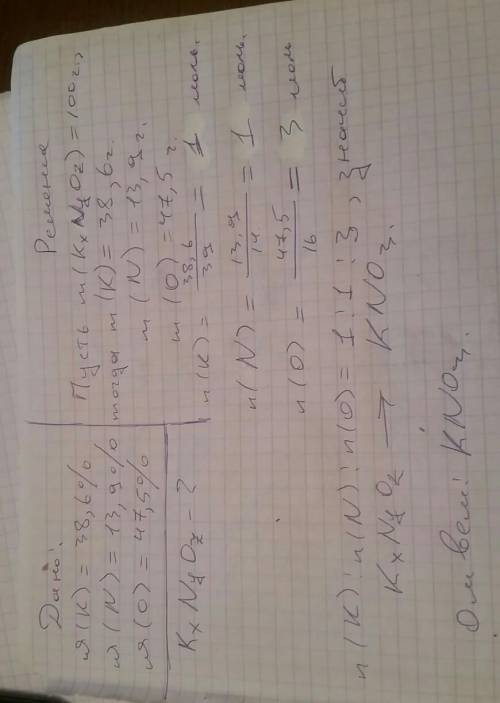 Дано:
ω(K) = 38,6%
ω(N) = 13,9%
ω(O) = 47,5%
KxNyOz - ?
Решение
Пусть m(KxNyOz) = 100г.,
тогда m(K) = 38,6г.
m(N) = 13,9г.
m(O) = 47,5 г.
n(K) = 38,6/39 = 1 моль.
n(N) = 13,9/14 = 1 моль.
n(O) = 47,5/16 = 3 моль
n(K):n(N):n(O) = 1:1:3, значит
KxNyOz → KNO3.
Ответ: KNO3.